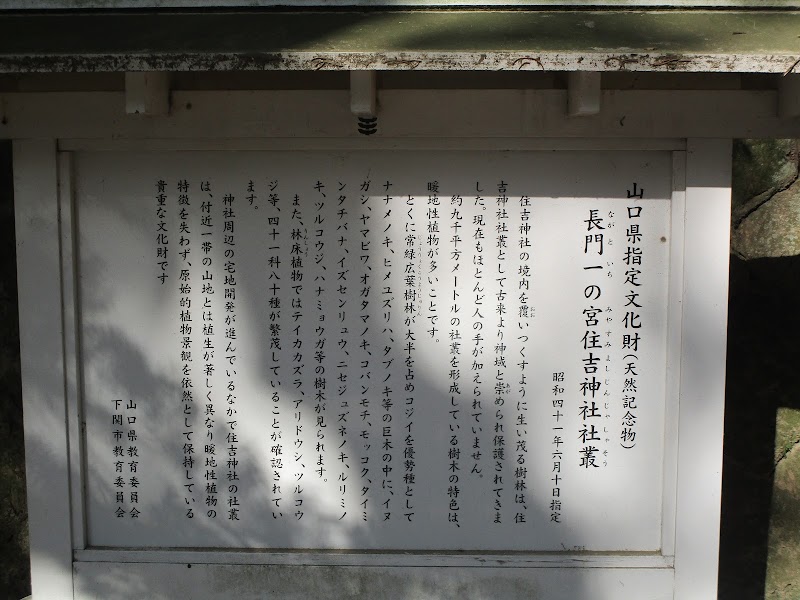 山口県指定文化財(天然記念物)
長門一の宮住吉神社社叢
ながと いち みやすみよしじんじゃ しゃそう
昭和四十一年六月十日指定
住吉神社の境内を覆いつくすように生い茂る樹林は、住
おお
吉神社社叢として古来より神域と崇められ保護されてきま
あが
した。現在もほとんど人の手が加えられていません。
約九千平方メートルの社叢を形成している樹木の特色は、
暖地性植物が多いことです。
とくに常緑広葉樹林が大半を占めコジイを優勢種として
じょうりょくこうようじゅりん
ナナメノキ、ヒメユズリハ、タブノキ等の巨木の中に、イヌ
ガシ、ヤマビワ、オガタマノキ、コバンモチ、モッコク、タイミ
ンタチバナ、イズセンリュウ、ニセジュズネノキ、ルリミノ
キ、ツルコウジ、ハナミョウガ等の樹木が見られます。
また、林床植物ではテイカカズラ、アリドウシ、ツルコウ
りんしょう
ジ等、四十一科八十種が繁茂していることが確認されてい
ます。
神社周辺の宅地開発が進んでいるなかで住吉神社の社叢
は、付近一帯の山地とは植生が著しく異なり暖地性植物の
特徴を失わず、原始的植物景観を依然として保持している
貴重な文化財です
山口県教育委員会
下関市教育委員会